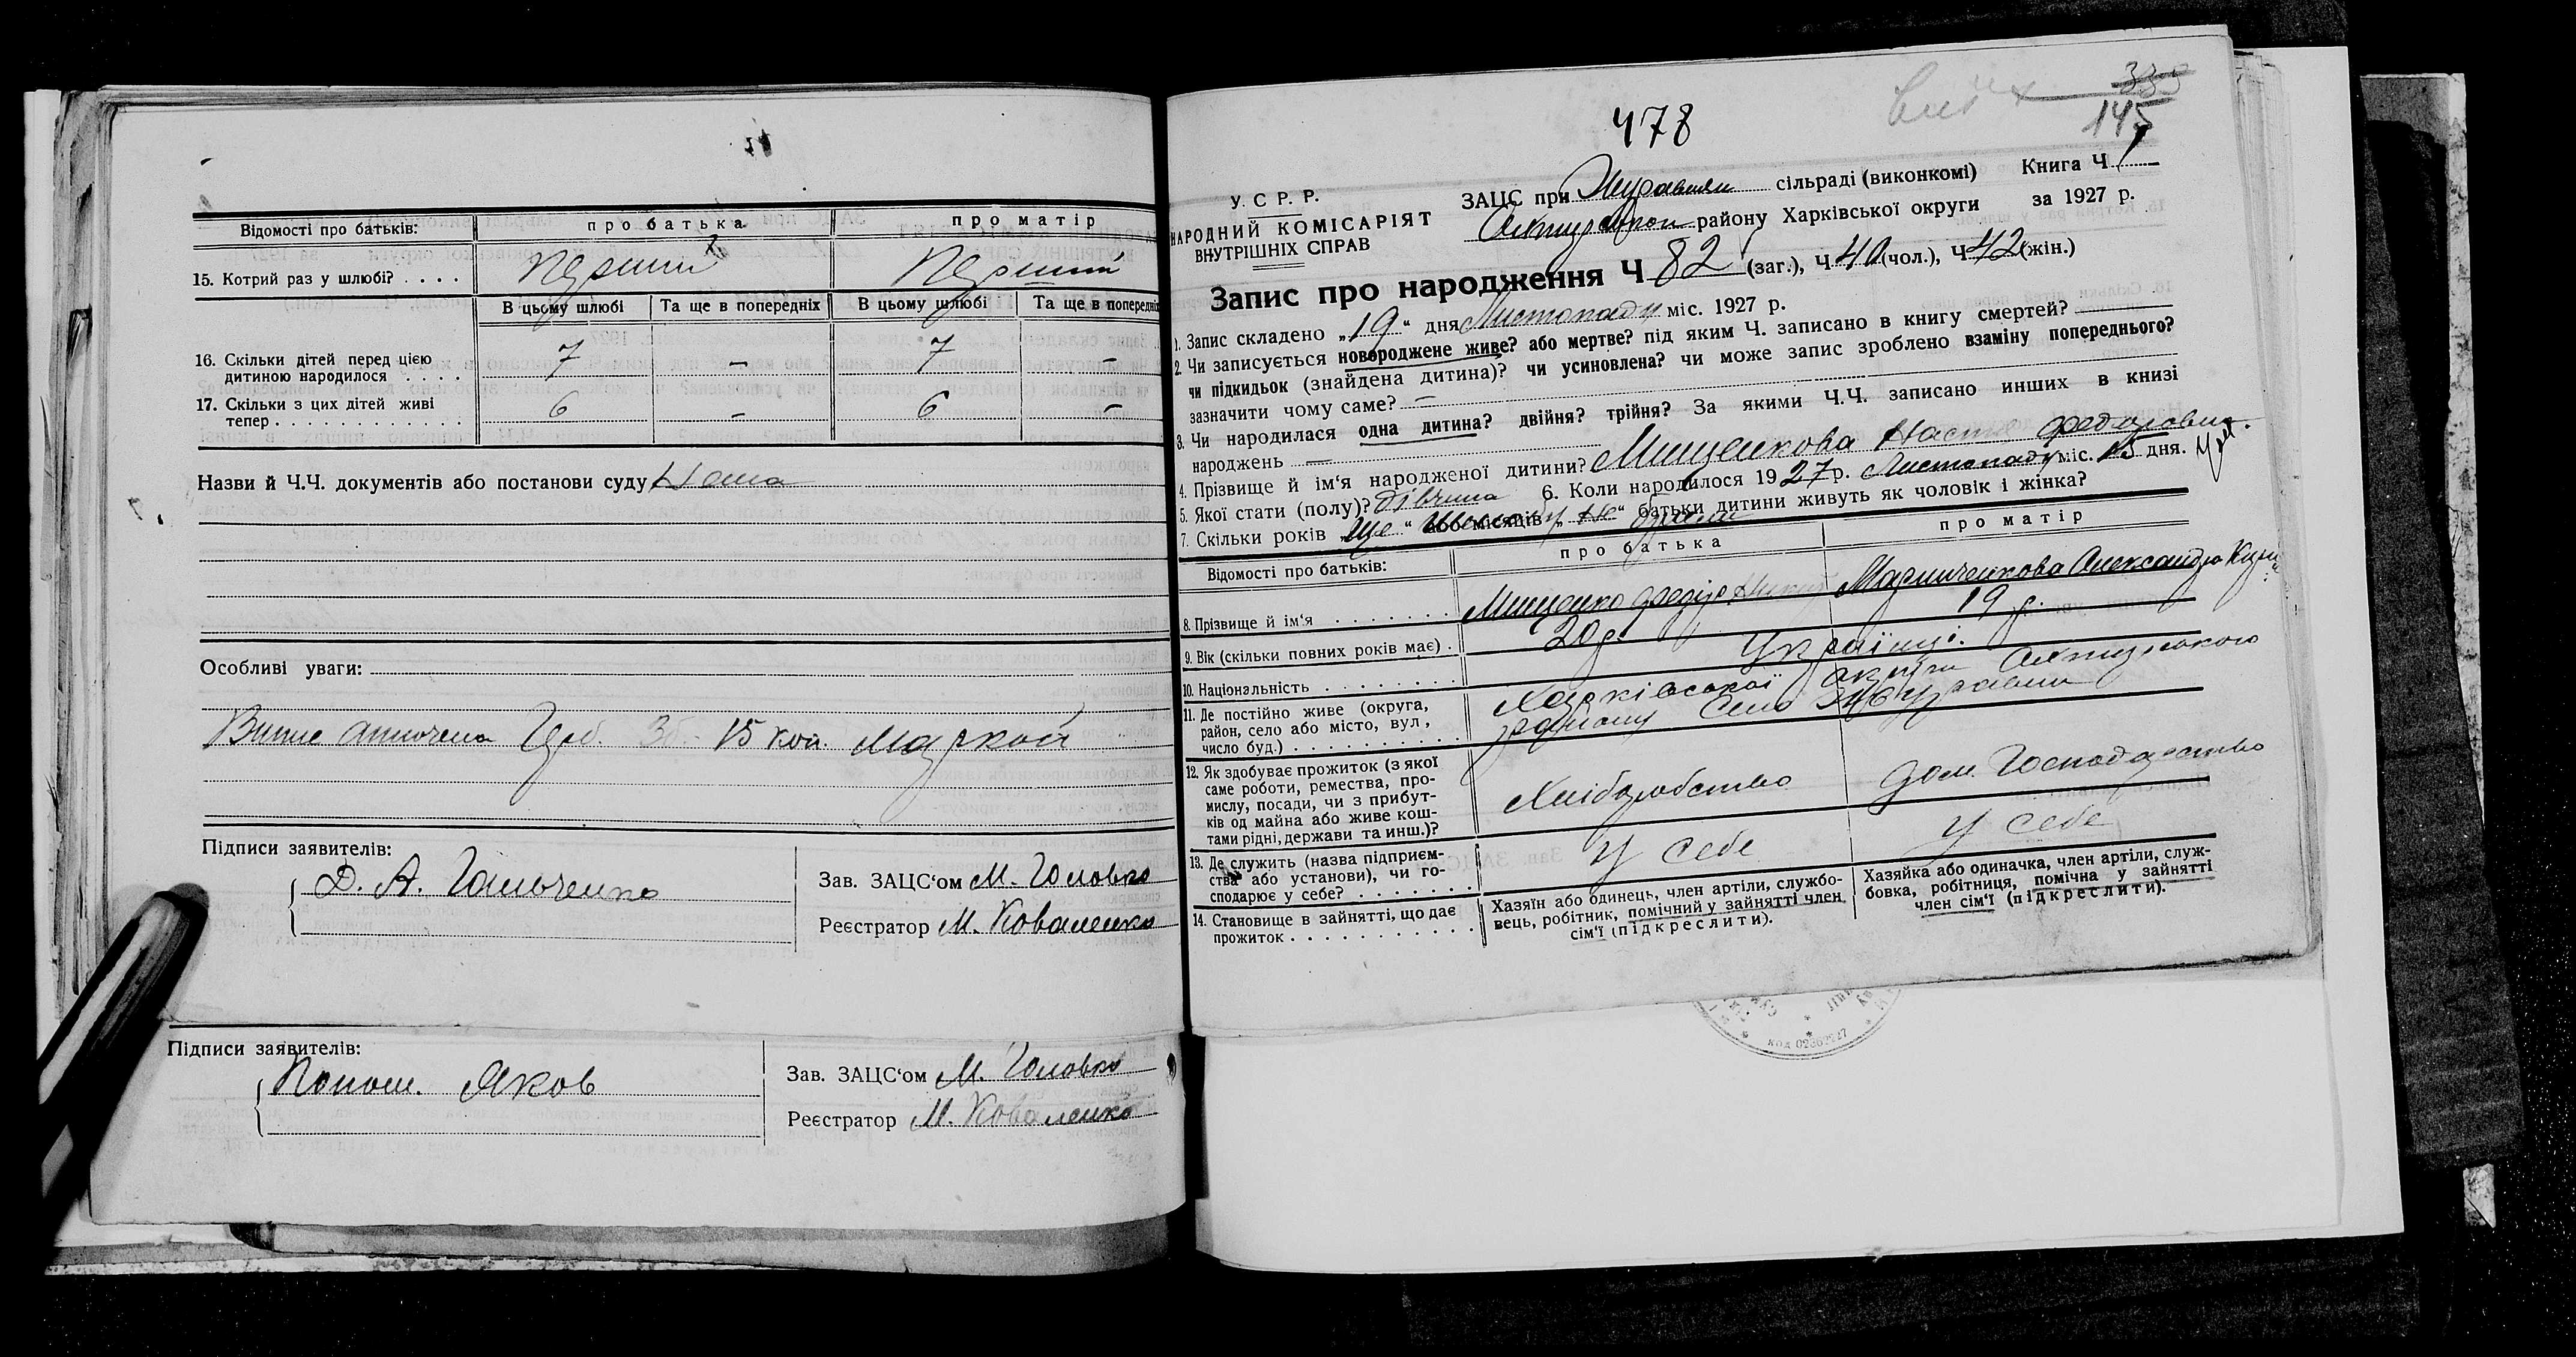 Відомості про батьків: про батька про матір
15. Котрий раз у шлюбі? . . . . Перший Перший
В цьому шлюбі Та ще в попередніх В цьому шлюбі Та ще в попередніх
16. Скільки дітей перед цією
дитиною народилося . . . . 7 – 7 –
17. Скільки з цих дітей живі
тепер . . . . . . . . . . . . . 6 – 6 –
Назви й Ч.Ч. документів або постанови суду
Особливі уваги:
15 коп. Маркой
Підписи заявителів:
Д. А. Гальченко
Зав. ЗАЦС‘ом М. Головко
Реєстратор М. Коваленко
Підписи заявителів:
Яков
Зав. ЗАЦС‘ом М. Головко
Реєстратор М. Коваленко
478
335
145
У. С. Р. Р.
НАРОДНИЙ КОМІСАРІЯТ
ВНУТРІШНІХ СПРАВ
ЗАЦС при Журавлян сільраді (виконкомі) Книга Ч. 1
району Харківської округи за 1927 р.
Запис про народження Ч 82 (заг.), Ч 40 (чол.), Ч 42 (жін.)
1. Запис складено „19“ дня Листопаду міс. 1927 р.
2. Чи записується новороджене живе? або мертве? під яким Ч. записано в книгу смертей?
чи підкидьок (знайдена дитина)? чи усиновлена? чи може запис зроблено взаміну попереднього?
зазначити чому саме? –
3. Чи народилася одна дитина? двійня? трійня? За якими Ч.Ч. записано инших в книзі
народжень –
4. Прізвище й ім‘я народженої дитини? Мищенкова Настя Федоровна.
5. Якої стати (полу)? дівчина 6. Коли народилося 1927 р. Листопаду міс. 15 дня.
7. Скільки років „Ще“ або місяців „не“ батьки дитини живуть як чоловік і жінка?
Відомості про батьків: про батька про матір
8. Прізвище й ім‘я . . . . . . . Мищенко Федір Александра
9. Вік (скільки повних років має) . 20 р. 19 р.
10. Національність . . . . . . . . Українці.
11. Де постійно живе (округа,
район, село або місто, вул.,
число буд.) . . . . . . . . . . Харківської округи Охтирського
району село Журавли
12. Як здобуває прожиток (з якої
саме роботи, ремества, про-
мислу, посади, чи з прибут-
ків од майна або живе кош-
тами рідні, держави та инш.)? Хліборобство Дом. Господарство
13. Де служить (назва підприєм-
ства або установи), чи го-
сподарює у себе? . . . . . . . У себе У себе
14. Становище в зайнятті, що дає
прожиток . . . . . . . . . . .
Хазяїн або одинець, член артіли, службо-
вець, робітник, помічний у зайнятті член
сім‘ї (підкреслити).
Хазяйка або одиначка, член артіли, служ-
бовка, робітниця, помічна у зайнятті
член сім‘ї (підкреслити).